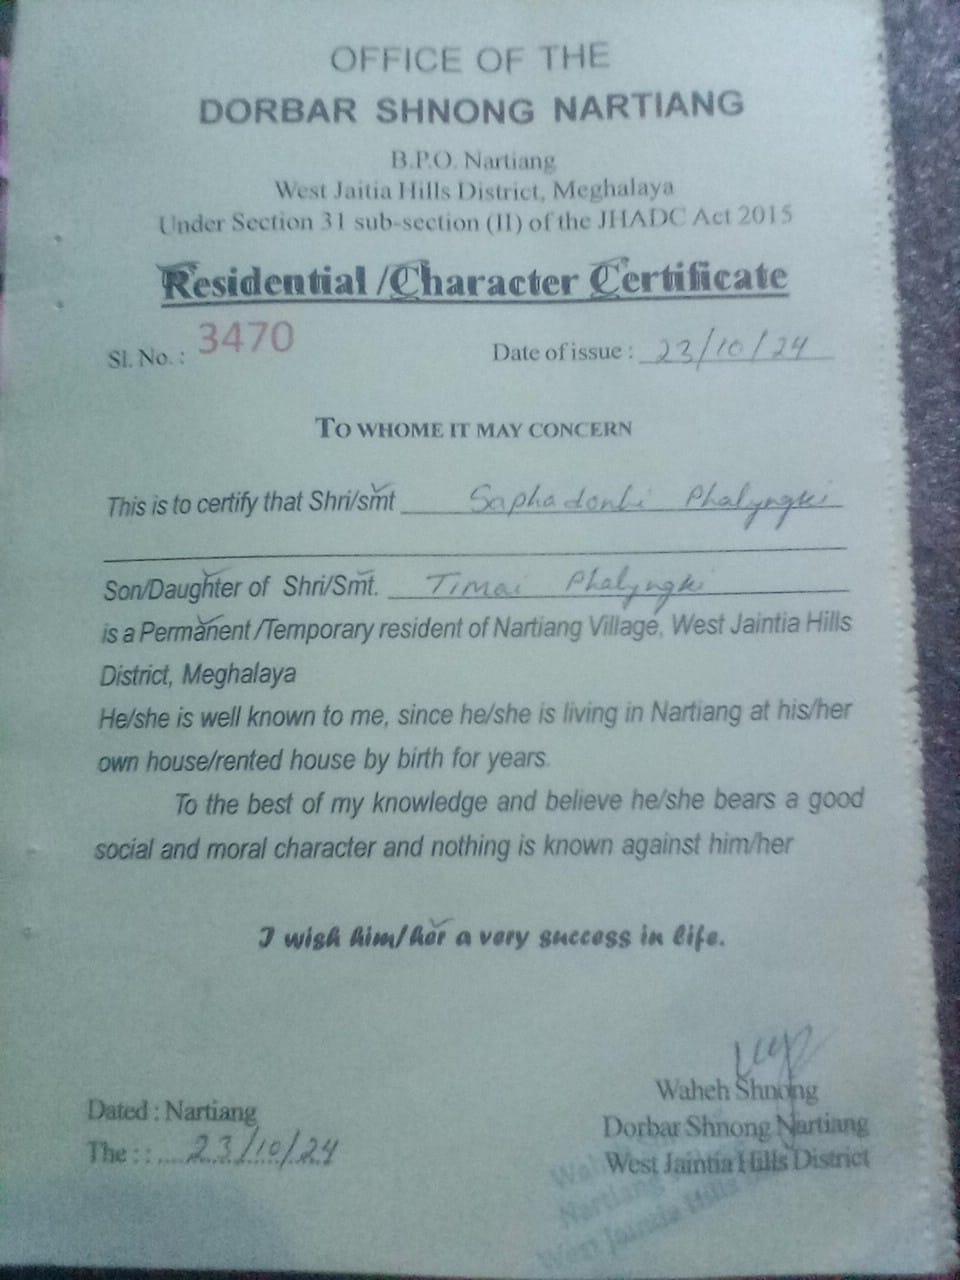 OFFICE OF THE
DORBAR SHNONG NARTIANG
B.P.O. Nartiang
West Jaitia Hills District, Meghalaya
Under Section 31 sub-section (II) of the JHADC Act 2015
Residential /Character Certificate
Sl. No. : 3470 Date of issue : 23/10/24
TO WHOME IT MAY CONCERN
This is to certify that Shri/smt Saphadonbi Phalyngki
Son/Daughter of Shri/Smt. Timai Phalyngki
is a Permanent /Temporary resident of Nartiang Village, West Jaintia Hills
District, Meghalaya
He/she is well known to me, since he/she is living in Nartiang at his/her
own house/rented house by birth for years.
To the best of my knowledge and believe he/she bears a good
social and moral character and nothing is known against him/her
I wish him/her a very success in life.
Waheh Shnong
Dated : Nartiang
Dorbar Shnong Nartiang
The : : .... 23/10/24
West Jaintia Hills District
Nartiang
West Jaintia Hills